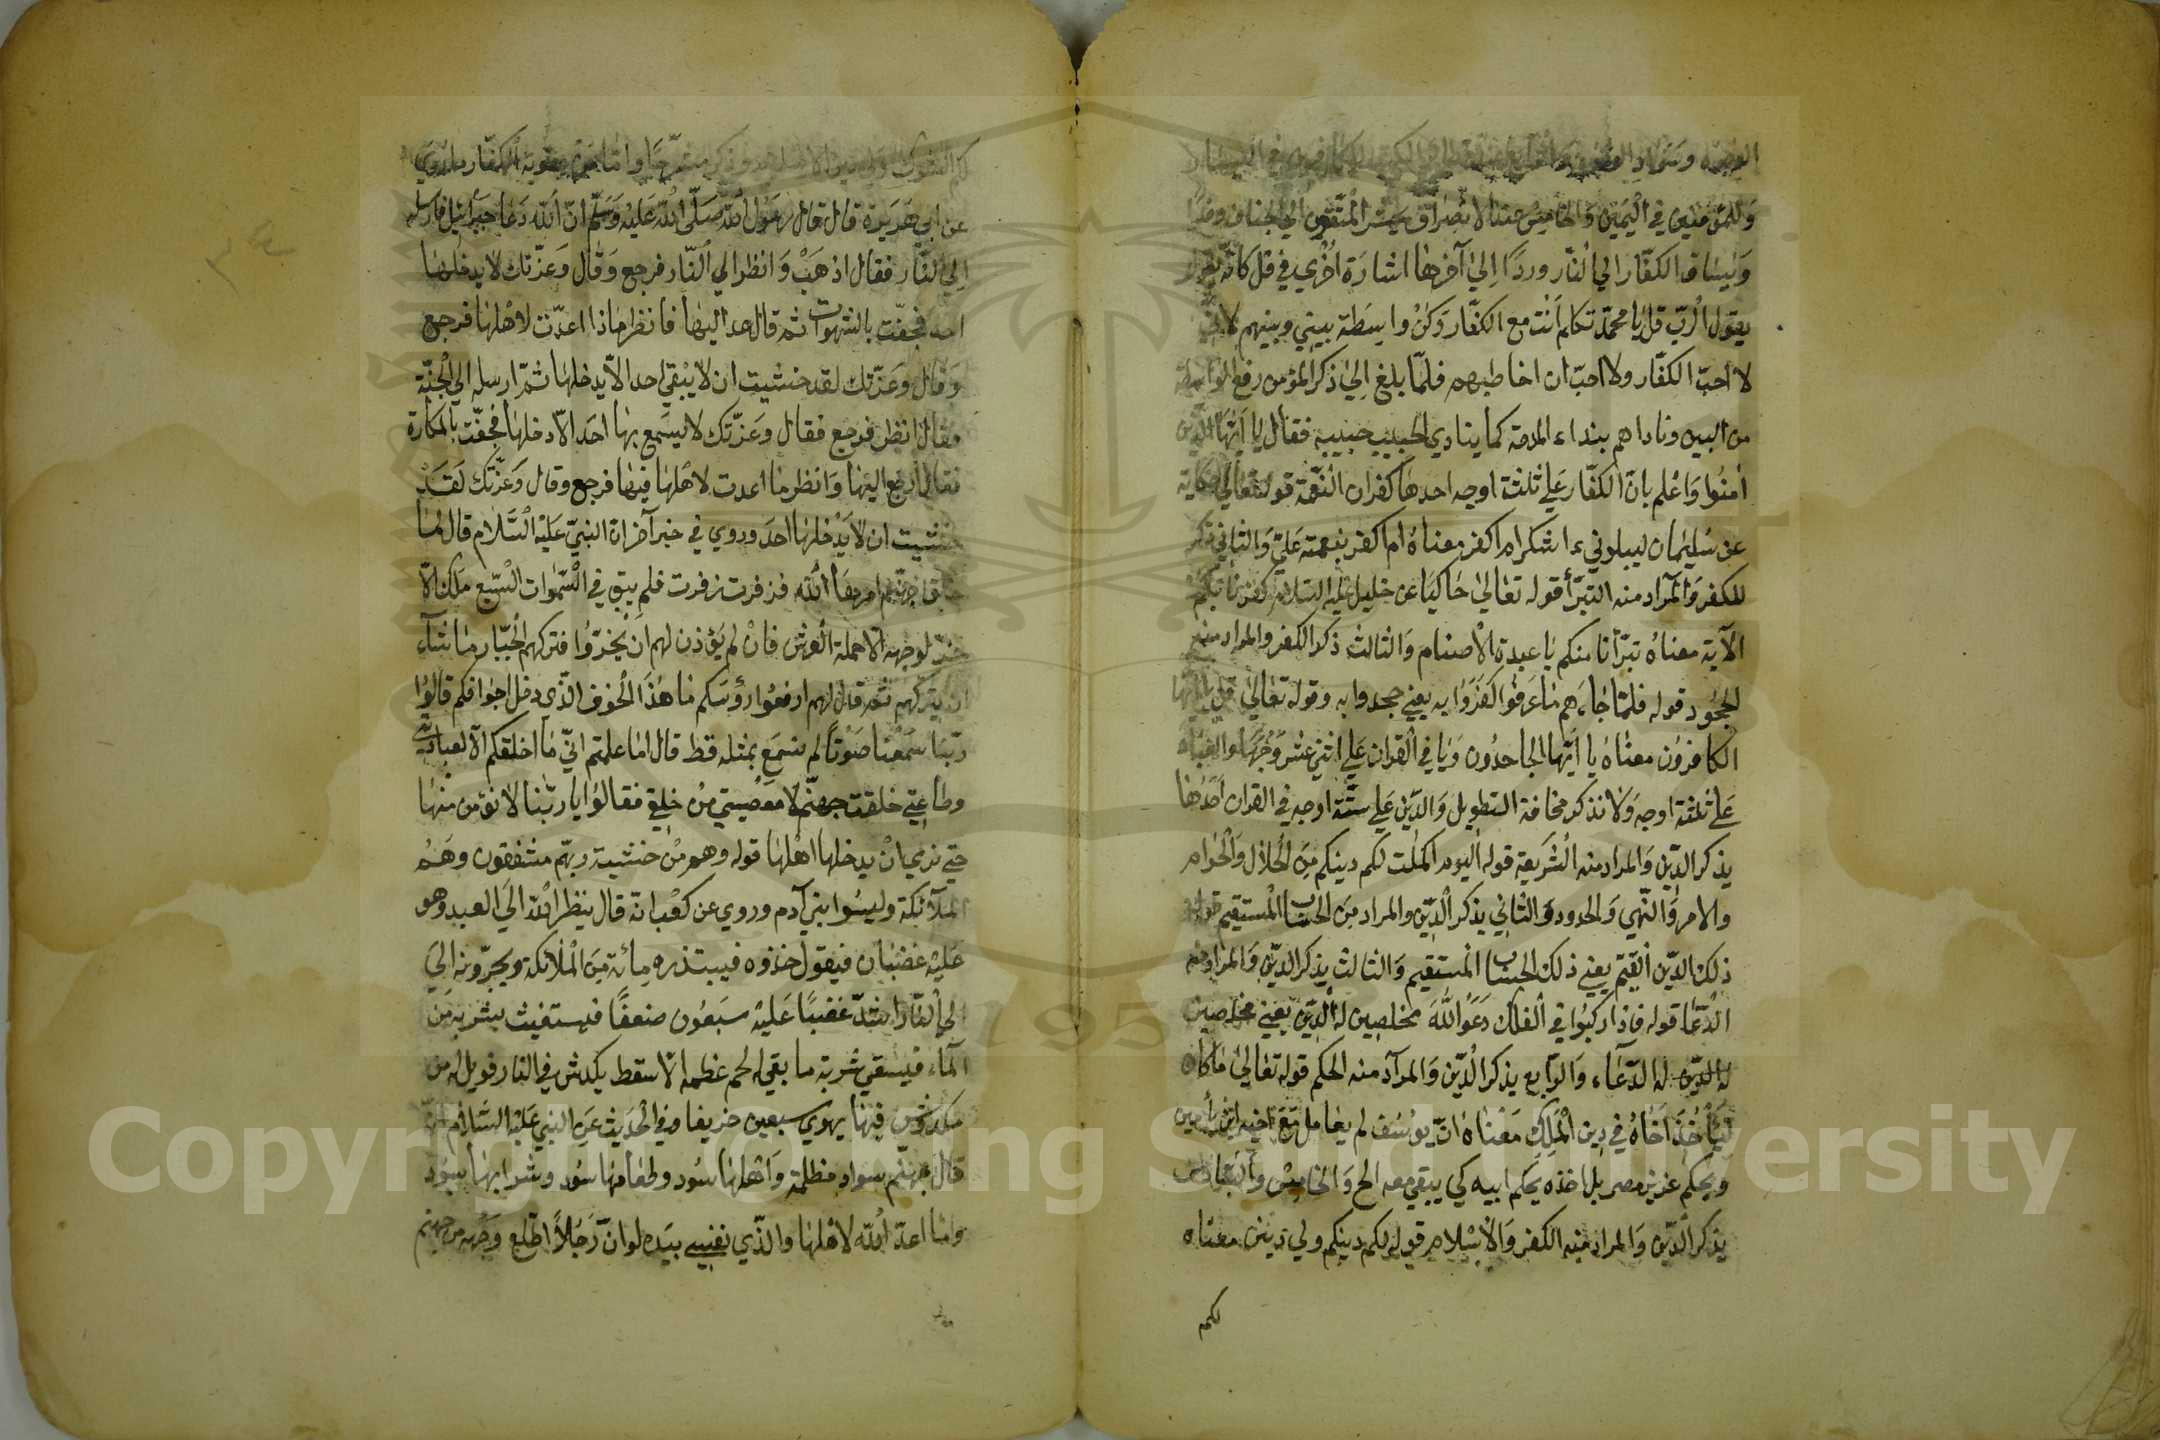 وللمؤمنين في اليمين والخامس عند الانصراف يحشر المتقون الى الجنان وفدا
ويساق الكفار الي النار وردا الي آخرها اشارة اخري في قل كانه
يقول الرب قل يا محمد تكلم انت مع الكفار وكن واسطة بيني وبينهم لاني
لا احب الكفار ولا احب ان اخاطبهم فلما بلغ الي ذكر المؤمن رفع الواسطة
من البين وناداهم بنداء المدحة كما ينادي الحبيب حبيبه فقال يا ايها الذين
امنوا واعلم بان الكفار علي ثلثة اوجه احدها كفران النعمة قوله تعالي حكاية
عن سليمان ليبلوني ء اشكر ام اكفر معناه ام اكفر بنعمته علي والثاني ذكر
للكفر والمراد منه التبرأ قوله تعالي حاكيا عن خليل عليه السلام كفرنا بكم
الآية معناه تبرأنا منكم يا عبدة الاصنام والثالث ذكر الكفر والمراد منه
الجحود قوله فلما جاءهم ما عرفوا كفروا به يعني جحدوا به وقوله تعالي قل يا ايها
الكافرون معناه يا ايها الجاحدون ويا في القران علي اثني عشر وجها
علي ثلثة اوجه ولا نذكر مخافة التطويل والدين علي ستة اوجه في القران احدها
يذكر الدين والمراد منه الشريعة قوله اليوم اكملت لكم دينكم من الحلال والحرام
والامر والنهي والحدود والثاني يذكر الدين والمراد من الحساب المستقيم قوله
ذلك الدين القيم يعني ذلك الحساب المستقيم والثالث يذكر الدين والمراد منه
الدعا قوله فاذا ركبوا في الفلك دعوا الله مخلصين له الدين يعني مخلصين
له الدين له الدعاء والرابع يذكر الدين والمراد منه الحكم قوله تعالي ما كان
ليأخذ اخاه في دين الملك معناه ان يوسف لم يعامل مع اخيه ابن يامين
وبحكم عزيز مصر بل اخذه بحكم ابيه كي يبقي معه الخ والخامس
يذكر الدين والمراد منه الكفر والاسلام قوله لكم دينكم ولي دين معناه
لكم
عن ابي هريرة قال قال رسول الله صلى الله عليه وسلم ان الله دعا جبرائيل فارسله
الي النار فقال اذهب وانظر الي النار فرجع وقال وعزتك لا يدخلها
احد فحفت بالشهوات ثم قال عد اليها فانظر ماذا اعدت لاهلها فرجع
وقال وعزتك لقد خشيت ان لا يبقي احد الا يدخلها ثم ارسله الي الجنة
فقال انظر فرجع فقال وعزتك لا يسمع بها احد الا دخلها فحفت بالمكاره
فقال ارجع اليها وانظر ما اعدت لاهلها فيها فرجع وقال وعزتك لقد
خشيت ان لا يدخلها احد وروي في خبر آخر ان النبي عليه السلام قال لما
خلق جهنم امرها الله فزفرت زفرت فلم يبق في السموات السبع ملك الا
خر لوجهه الا حملة العرش فان لم يؤذن لهم ان يخروا فتركهم الجبار ما شاء
ان يتركهم ثم قال لهم ارفعوا رؤسكم ما هذا الخوف الذي دخل اجوافكم قالوا
ربنا سمعنا صوتا لم نسمع بمثله قط قال اما علمتم اني ما اخلقكم الا لعبادتي
وطاعتي خلقت جهنم لا معصيتي من خلقي فقالوا يا ربنا لا نؤمن منها
حتي نري ان يدخلها اهلها قوله وهم من خشية ربهم مشفقون وهم
الملائكة وليسوا بني آدم وروي عن كعب انه قال ينظر الله الي العبد وهو
عليه غضبان فيقول خذوه فيبتدره مائة من الملائكة ويجرونه الي
الي النار اشد غضبا عليه سبعون ضعفا فيستغيث بشربة من
الماء فيسقي شربة ما بقي له لحم عظمه الا سقط يكدش في النار فويل له من
فيها يهوي سبعين خريفا وفي الحديث عن النبي عليه السلام انه
قال جهنم سواد مظلمة واهلها سود وطعامها سود وشرابها سود
وما اعد الله لاهلها والذي نفسي بيده لو ان رجلا اطلع وجهه من جهنم
Copyright © King Saud University
195